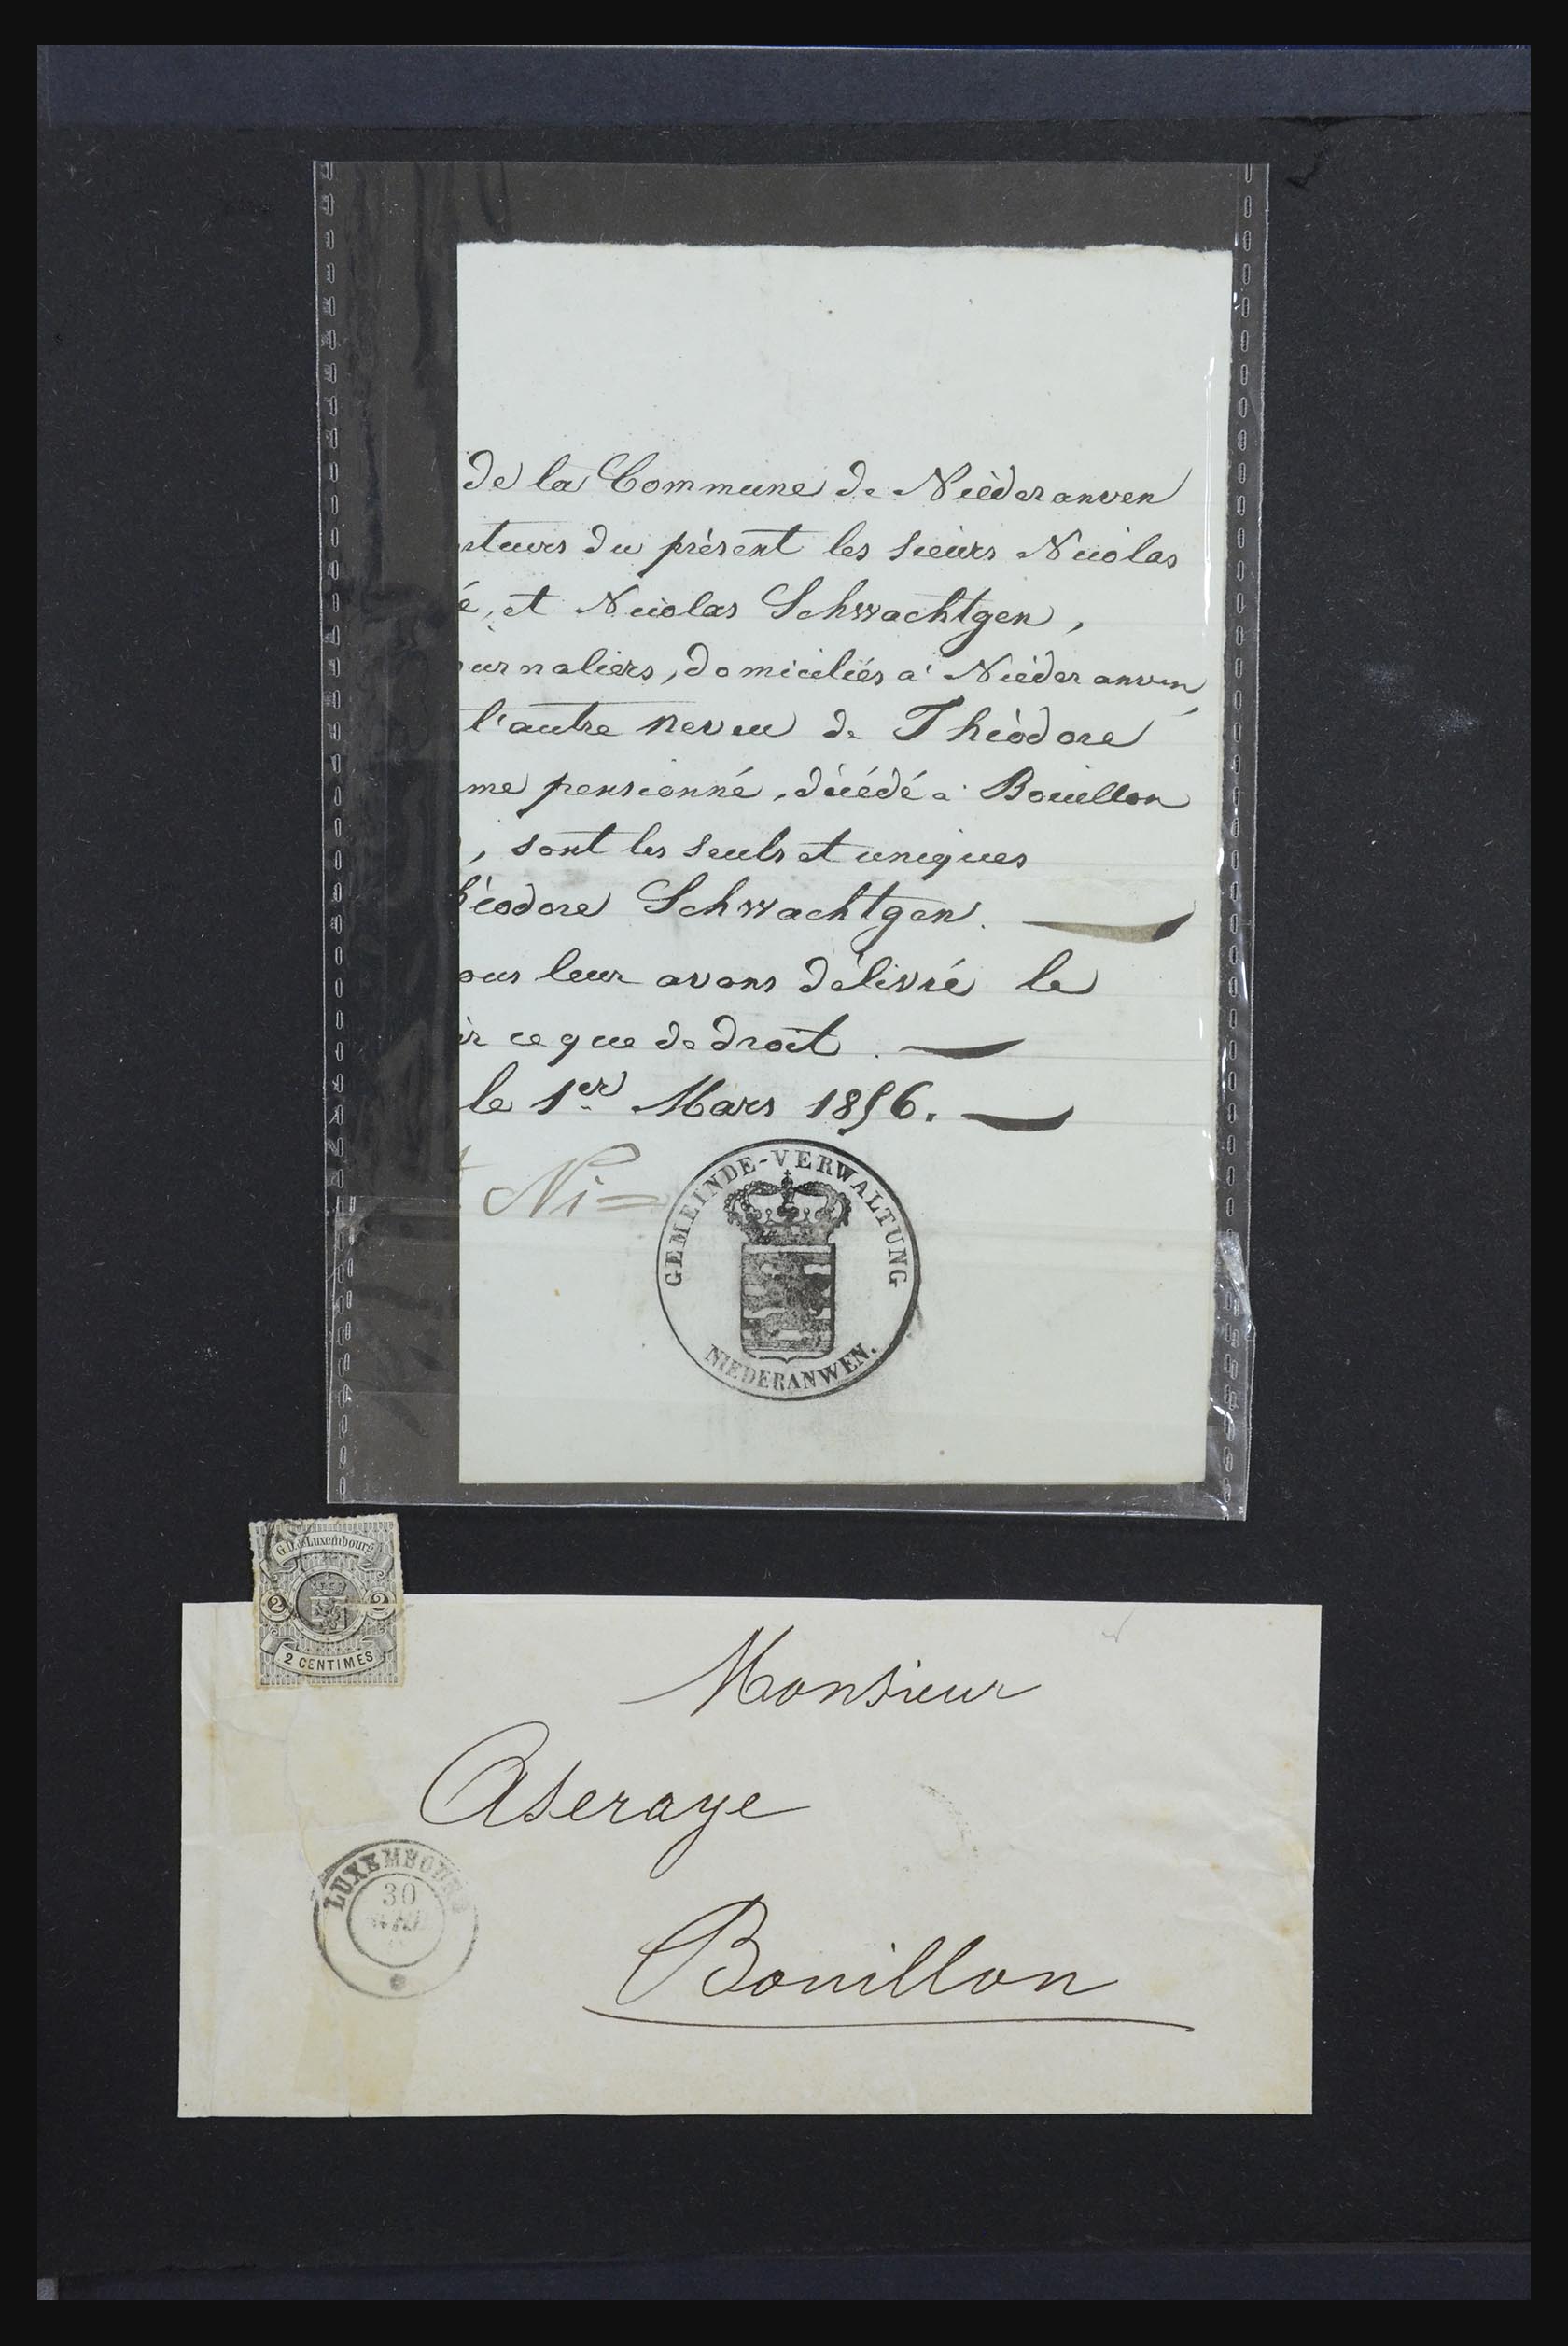 de la Commune de Niederanven
rteurs du présent les sieurs Nicolas
é, et Nicolas Schwachtgen,
ournaliers, domiciliés à Niederanven,
l'autre neveu de Théodore
me pensionné, décédé à Bouillon
, sont les seuls et uniques
héodore Schwachtgen.
ous leur avons délivré le
ir ce que de droit.
le 1er Mars 1856.
Ni=
GEMEINDE-VERWALTUNG
NIEDERANWEN.
G.D. de Luxembourg
2 2
2 CENTIMES
Monsieur
Aseraye
LUXEMBOURG
30
Bouillon